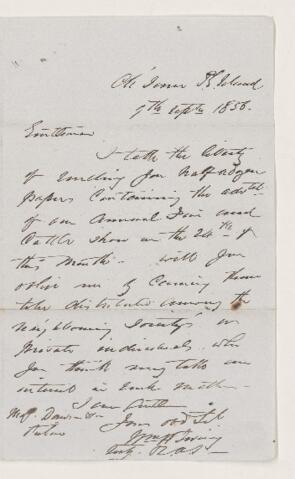 7th Septr 1858.
Gentlemen
I take the liberty
of sending you half a dozen
papers containing the advt
of our Annual Fair and
Cattle Show on the 24th of
this Month - will you
oblige me by causing them
to be distributed among the
neighbouring Society's or
private individuals who
you think may take an
interest in such matters -
I am Gentln
Your obdt St